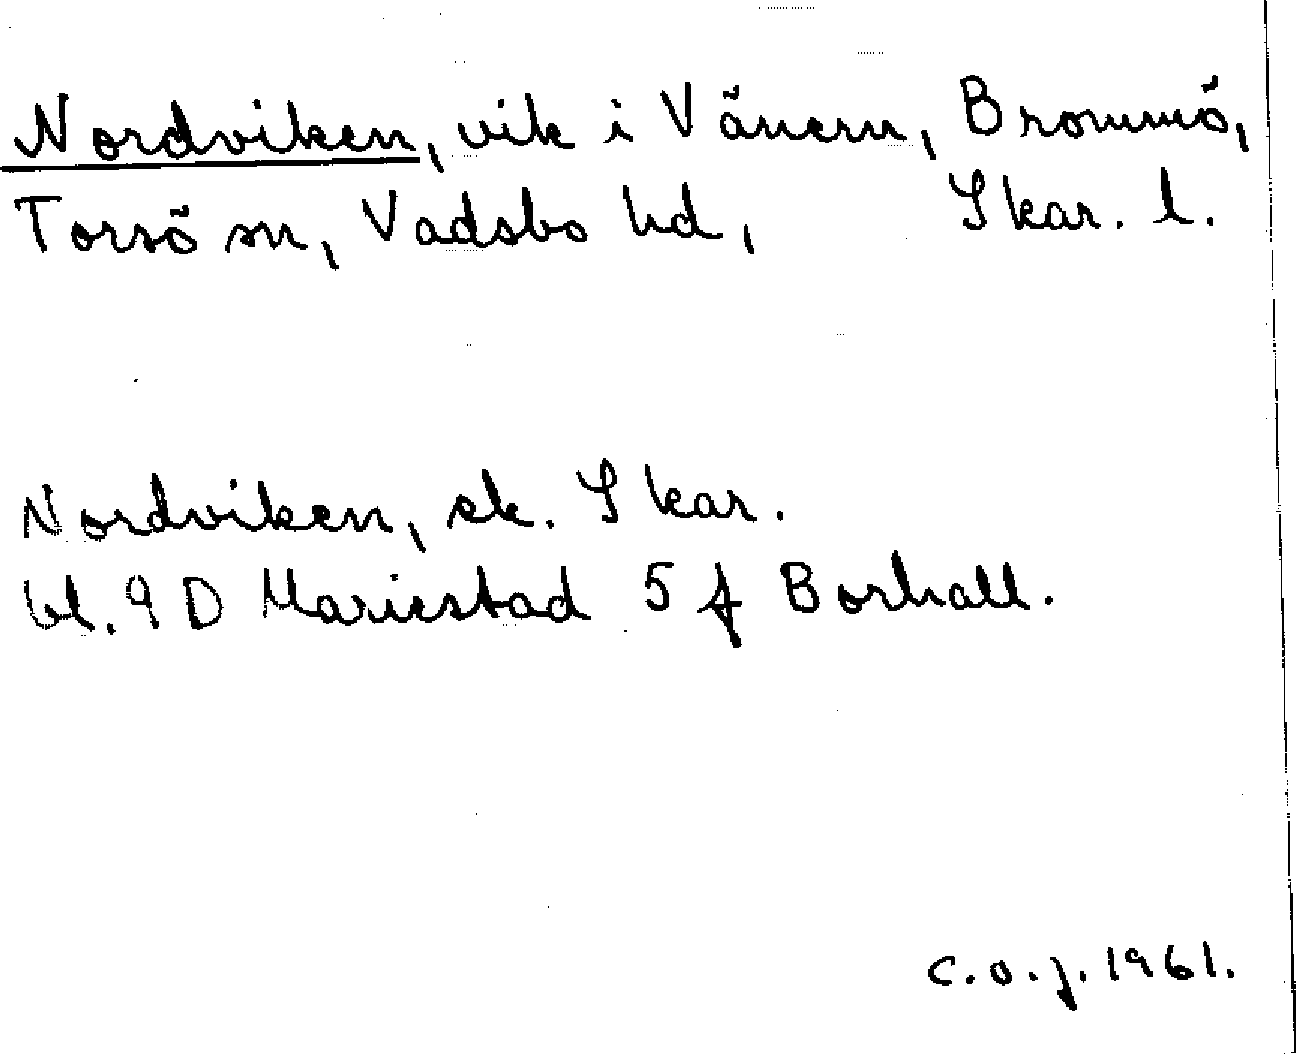 Nordviken, vik i Vänern, Brommö,
Torsö sn, Vadsbo hd, Skar. l.
Nordviken, ek. Skar.
bl. 9 D Mariestad 5 f Borhall.
C.O.J. 1961.